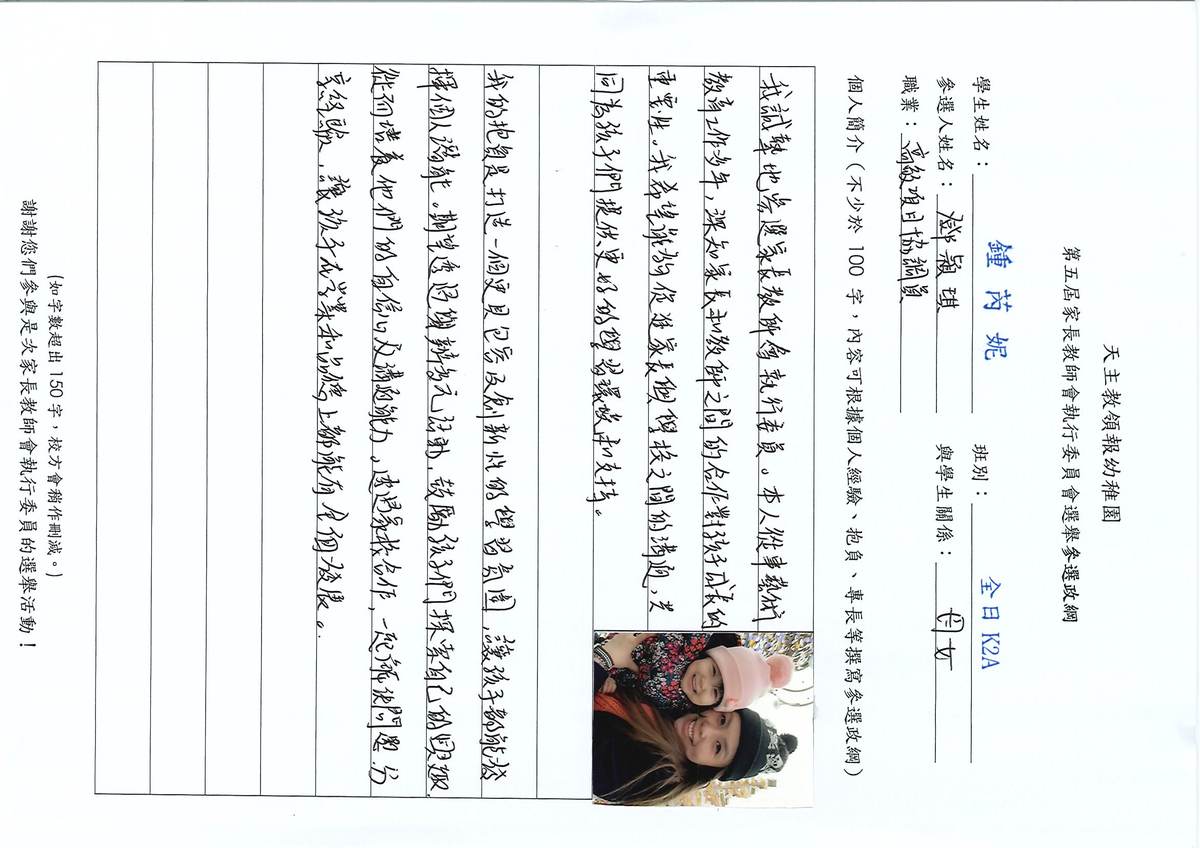 天主教領報幼稚園
第五屆家長教師會執行委員會選舉參選政綱
學生姓名：鍾芮妮 班別：全日K2A
參選人姓名：鄧穎琪 與學生關係：母女
職業：高級項目協調員
個人簡介（不少於 100 字，內容可根據個人經驗、抱負、專長等撰寫參選政綱）
我誠摯地參選家長教師會執行委員。本人從事藝術
教育工作多年，深知家長和教師之間的合作對孩子成長的
重要性。我希望能夠促進家長與學校之間的溝通，共
同為孩子們提供更好的學習環境和支持。
我的抱負是打造一個更具包容及創新性的學習氛圍，讓孩子都能發
揮個人潛能。期望透過舉辦多元活動，鼓勵孩子們探索自己的興趣
從而培養他們的自信心及溝通能力。透過家校合作，一起解決問題、分
享經驗，讓孩子在學業和品德上都能有全個發展。
(如字數超出 150 字，校方會稍作刪減。)
謝謝您們參與是次家長教師會執行委員的選舉活動！